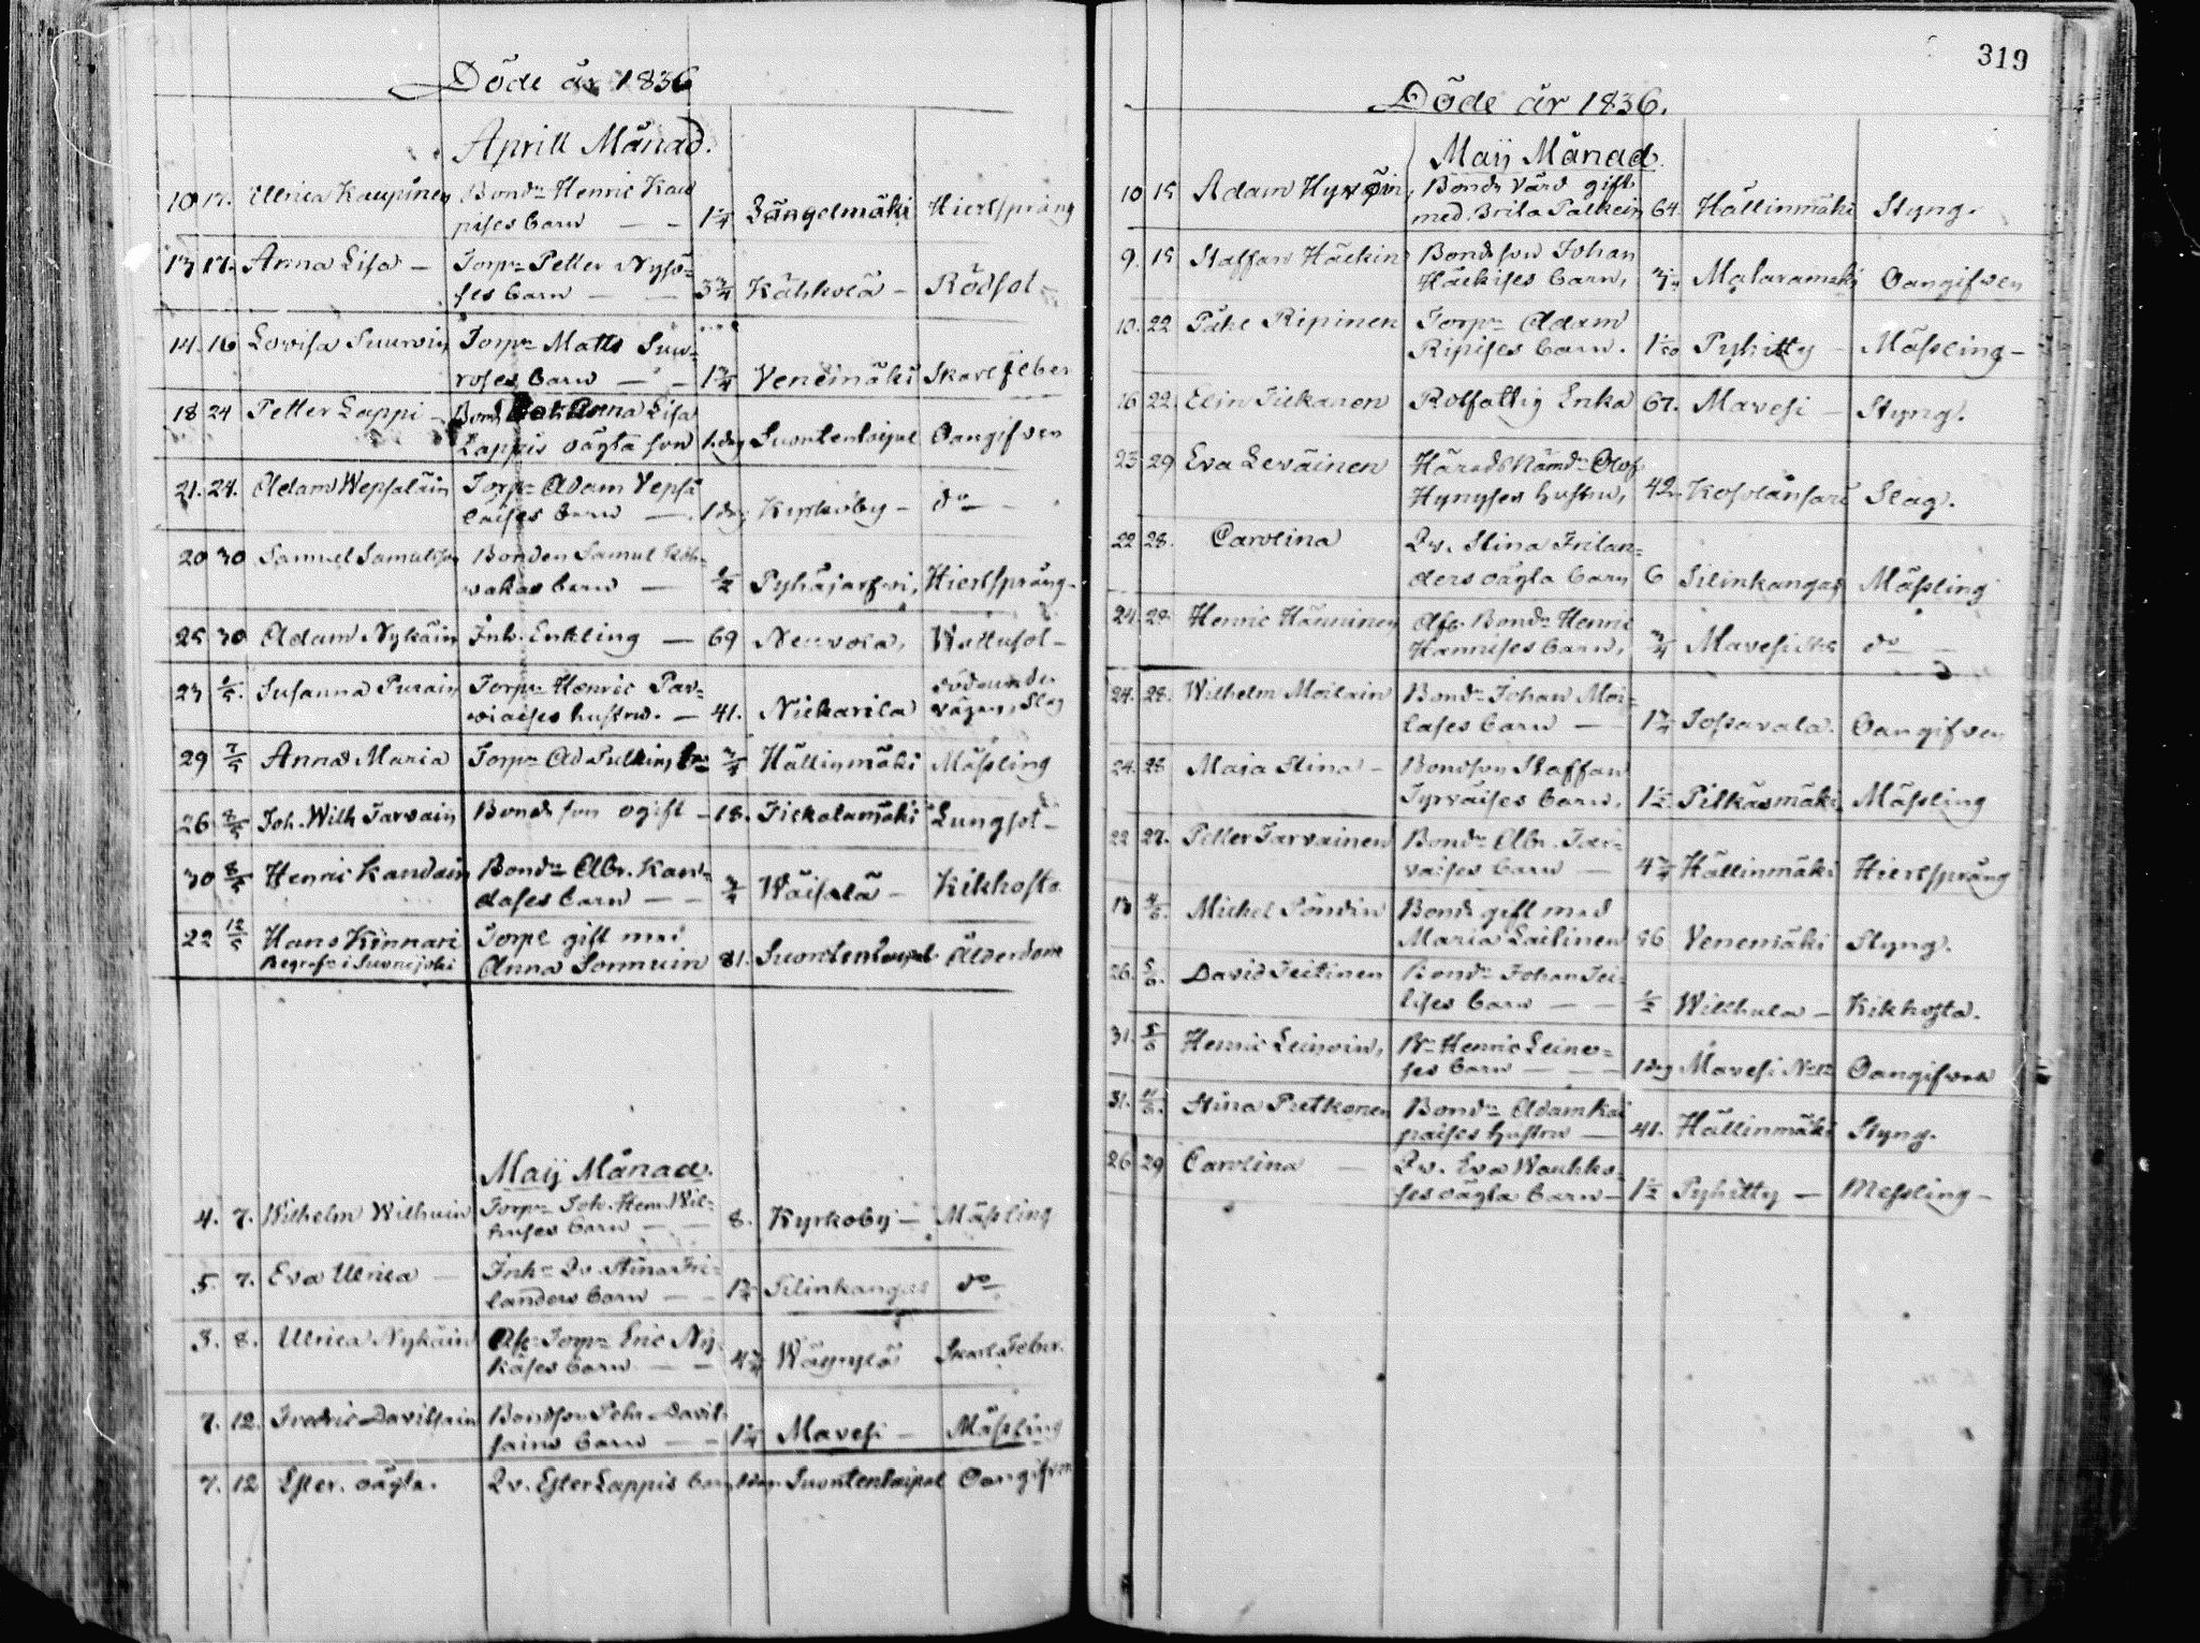 Döde år 1836
Aprill Månad.
10 17. Ullrica Kaupinen Bondn Henric Kau
pises barn — - 1 1/4 Sängelmäki Hiertsprång
13 17. Anna Lisa — Torpn Petter Nysö-
ses barn — — 3 3/4 Kähkölä - Rödsot
14. 16 Lovisa Suurvin Torpn Matts Suu-
roses barn — - 1 3/4 Venemäki Skarlfeber
18 24 Petter Lappi - Bond Anna Lisa
Lappis oägta son 1 dag Suontentaipal Oangifven
21. 24. Adam Wepsäläin Torpn Adam Vepsä
läises barn — 1 dag Kyrkoby - do
20 30 Samuel Samuelsson Bonden Samul
wakas barn — 1/2 Pyhäjärfwi, Hiertsprång-
25 30 Adam Nykäin Inh. Enkling — 69 Neuvola, Wattusot-
23 1/5. Susanna Purain Torpn Henric Par-
viaises hustru. — 41. Niekarila död under vägen, Slag
29 7/5 Anna Maria Torpn Ad Pulkins bn 3/4 Hällinmäki Mässling
26 8/5 Joh. Wilh Tarvain Bondeson ogift - 18. Tickalamäki Lungsot-
30 8/5 Henric Kandain Bondn Abr. Kan-
dases barn — - 3/4 Wäisälä - Kikhosta
22 12/5 Hans Kinnari Torpe gift med
Begrafs i Suonejoki Anna Sormuin 81. Suontentaipal Ålderdom
Maij Månad.
4. 7. Wilhelm Wilhuin Torpn Joh. Hen. Wil-
huses barn — - 8. Kyrkoby - Mässling
5. 7. Eva Ulrica — Inhn Qv. Stina Fri-
landers barn — - Silinkangas do
3. 8. Ulrica Nykäin Afl Torpn Eric Ny-
käses barn — - 4 3/4 Wäyrylä Skarl Feber.
7. 12. Fredric Davilsain Bondson Pehr Davil-
sains barn — - 1 1/4 Mavesi - Mässling
7. 12 Ester. oägta. Qv. Ester Lappis barn 1 dag Suontentaipal Oangifven
319
Döde år 1836.
Maij Månad.
10 15 Adam Hyvöin, Bonde Värd gift
med Brita Palkein 64. Hällinmäki Styng.
9. 15 Staffan Häekin Bondeson Johan
Häekises barn, Malaramäki Oangifven
10. 22 Påhl Ripinen Torpn Adam
Ripises barn. Pyhitty - Mässling -
16 22. Elin Tickanen Rotfattig Enka 67. Mavesi - Styng.
23 29 Eva Leväinen Härads Nämdn Olof
Hynyses hustru, 42. Kosolansari Slag.
22 28. Carolina Qv. Stina Frilan-
ders oägta barn 6 Silinkangas Mässling
24. 28. Henric Hänninen Afl. Bondn Henric
Hännises barn, 3/4 Mavesi do —
24. 28. Wilhelm Moilain Bondn Johan Moi-
lases barn — 1 3/4 Tossavala. Oangifven
24. 28 Maja Stina - Bondson Staffan
Tyrväises barn. 1 1/2 Pitkäsmäki Mässling
22 27. Petter Tarvainen Bondn Abr. Tar-
vaises barn — 4 3/4 Hällinmäki Hiertsprång
13 4/6. Michel Pöndin Bonde gift med
Maria Lailinen 86 Venemäki Styng.
26. 5/6. David Teitinen Bondn Johan Tei-
tises barn — - 1/2 Wilkhula - Kikhosta.
31. 5/6 Henric Leinoin, Bn Henric Leino-
ses barn — — 1 dag Mavesi No 12 Oangifven
31. Stina Putkonen Bondn Adam Kai
paises hustru — 41. Hällinmäki Styng.
26 29 Carolina — Qv. Eva Wauhko-
ses oägta barn - 1 1/2 Pyhitty — Messling -